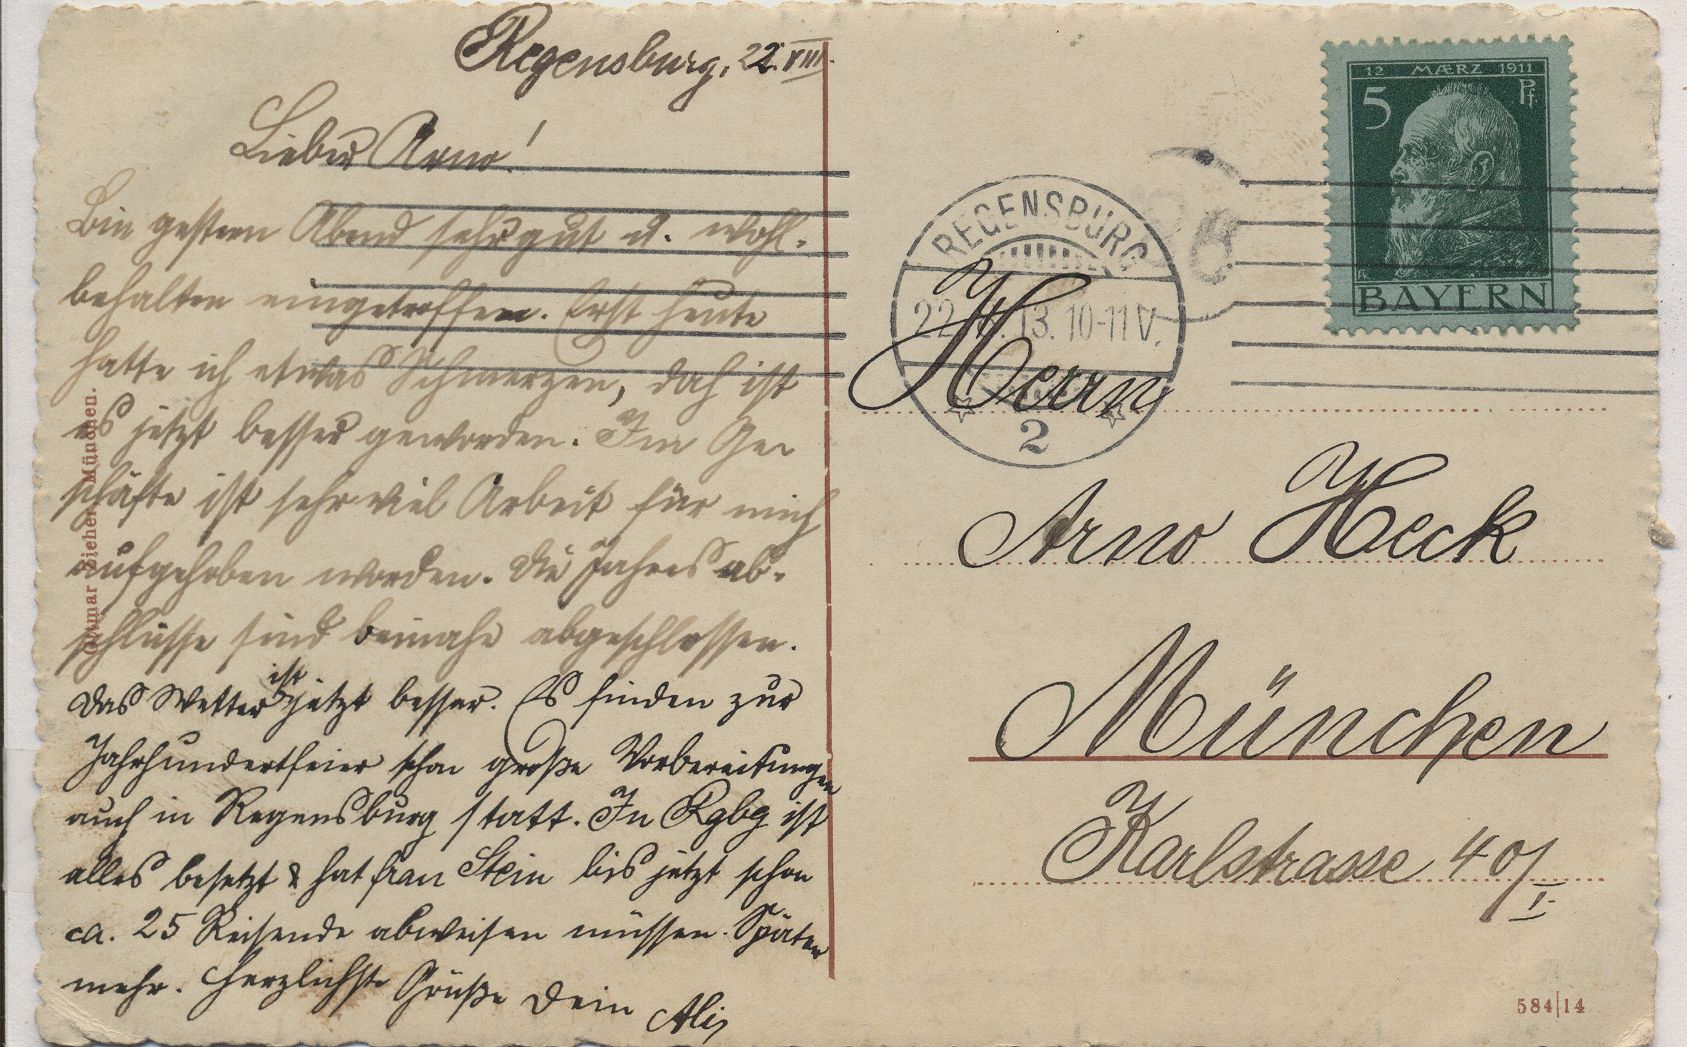 Regensburg, 22. VIII.
Lieber Arno!
Bin gestern Abend sehr gut u. wohl-
behalten eingetroffen. Erst heute
hatte ich etwas Schmerzen, doch ist
es jetzt besser geworden. Im Ge-
schäfte ist sehr viel Arbeit für mich
aufgehoben worden. Die Jahres ab-
schlüsse sind beinahe abgeschlossen.
Das Wetter ist jetzt besser. Es finden zur
Jahrhundertfeier schon große Vorbereitungen
auch in Regensburg statt. In Rgbg ist
alles besetzt & hat Frau Stein bis jetzt schon
ca. 25 Reisende abweisen müssen. Später
mehr. Herzlichste Grüße Dein
Ottmar Zieher, München.
12 MÆRZ 1911
5 Pf.
BAYERN
REGENSBURG
22. 13. 10-11 V.
2
Herrn
Arno Heck
München
Karlstrasse 40/I.
584|14